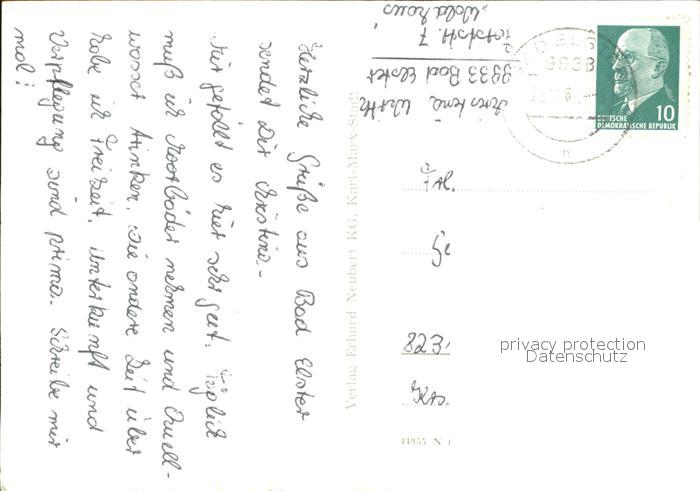 Herzliche Grüße aus Bad Elster
sendet Dir Christine.-
Mir gefällt es hier sehr gut. Täglich
muß ich Moorbäder nehmen und Quell-
wasser trinken. Die andere Zeit über
habe ich Freizeit. Unterkunft und
Verpflegung sind prima. Schreibe mir
mal!
Christine
9933 Bad Elster
7
"Waldhaus"
Verlag Erhard Neubert KG, Karl-Marx-Stadt
BAD ELSTER
9933
DEUTSCHE
DEMOKRATISCHE REPUBLIK
10
Frl.
823
privacy protection
Datenschutz